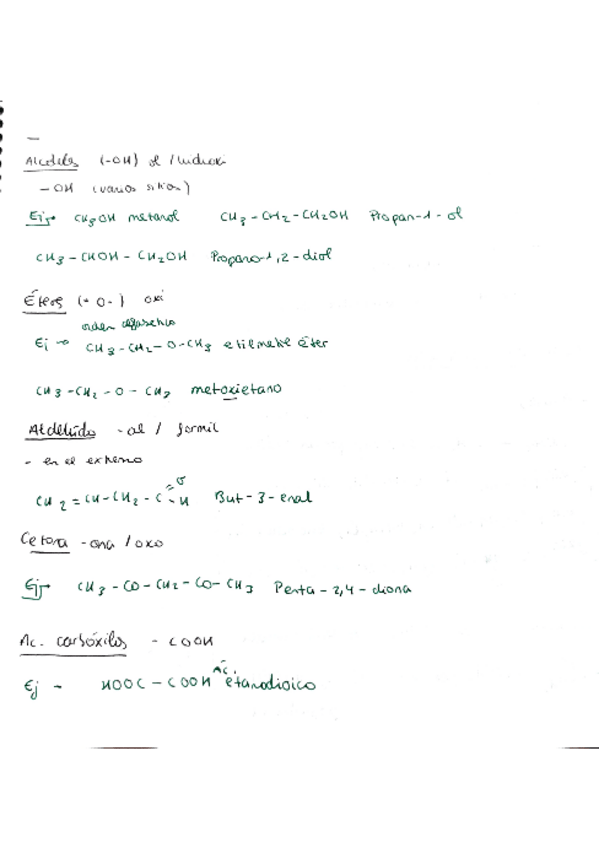 Alcoholes (-OH) ol / hidroxi
- OH (varios sitios)
Ej→ CH3OH metanol CH3 - CH2 - CH2OH Propan-1-ol
CH3 - CHOH - CH2OH Propano-1,2-diol
Éteres (-O-) oxi
orden alfabético
Ej → CH3-CH2-O-CH3 etilmetil éter
CH3-CH2-O-CH3 metoxietano
Aldehído -al / formil
- en el extremo
O
CH2=CH-CH2-C-H But-3-enal
Cetona -ona / oxo
Ej→ CH3-CO-CH2-CO-CH3 Penta-2,4-diona
Ac. carboxílos - COOH
Ej - HOOC-COOH Ác. etanodioico